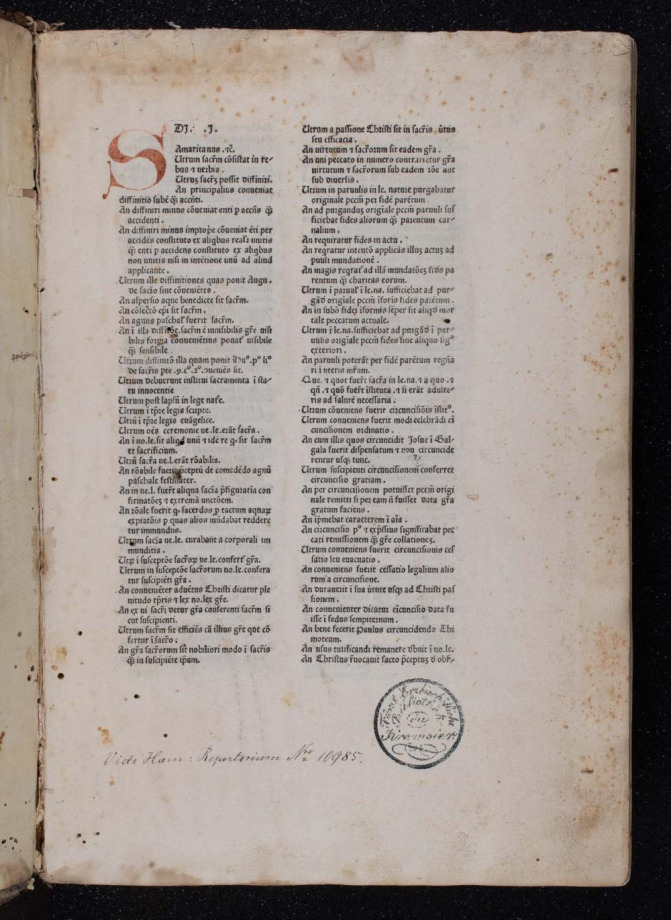 DI. .I.
SAmaritanus .⁊č.
Utrum sacrm cōsistat in re-
bus ⁊ verbis.
Utruʒ sacrʒ possit diffiniri.
An principalius conueniat
diffinitio subē q̄ accn̄ti.
An diffiniri minus cōueniat enti p accn̄s q̄
accidenti.
An diffiniri minus improp̄e cōueniat ēti per
accidēs constituto ex aliqbus realr̄ unitis
q̄ enti p accidens constituto ex aliqbus
non unitis nisi in intētione unū ad aliud
applicante.
Utrum ille diffinitiones quas ponit Augu.
de sacro sint cōueniētes.
An aspersio aque benedicte sit sacrm.
An cōfectō ep̄i sit sacrm.
An agnus paschal' fuerit sacrm.
An ī illa sacrm ē inuisibilis gr̄e uisi
bilis forma conueniētius ponat' uisibile
q̄ sensibile.
Utrum diffinitiō illa quam ponit
de sacris
Utrum debuerunt institui sacramenta ī sta-
tu innocentie
Utrum post lapsū in lege nat̄e.
Utrum ī tp̄re legis scripte.
Utrū ī tp̄re legis euāgelice.
Utrum oēs ceremonie ue.le.erāt sacr̄a.
An ī no.le.sit aliqd unū ⁊ idē re q sit sacrm
et sacrificium.
Utrū sacr̄a ue.l.erāt rōabilia.
An rōabile fuerit p̄ceptū de comedēdo agnū
paschale festināter.
An in ue.l. fuer̄t aliqua sacr̄a p̄figuratia con
firmatōeʒ ⁊ extremā unctōem.
An rōale fuerit q sacerdos p tactum aquaʒ
expiatōis p quas alios mūdabat reddere
tur immundus.
Utrum sacr̄a ue.le. curabant a corporali im
munditia.
Utʒ ī susceptōe sacroʒ ue.le.confert' gr̄a.
Utrum in susceptōe sacrorum no.le.confera
tur suscipiēti gr̄a.
An conueniēter aduētus Christi dicatur ple
nitudo tp̄ris ⁊ lex no.lex gr̄e.
An ex ui sacri detur gr̄a conferenti sacrm si
cut suscipienti.
Utrum sacrm sit efficiēs cā illius gr̄e que cō
fertur ī sacro.
An gr̄a sacrorum sit nobiliori modo ī sacris
q̄ in suscipiēte ip̄am.
Utrum a passione Christi sit in sacris uirtus
seu efficacia.
An uirtutum ⁊ sacrorum sit eadem gr̄a.
An uni peccato in numero contrarietur gr̄a
uirtutum ⁊ sacrorum sub eadem rōe aut
sub diuersis.
Utrum in paruulis in le. nature purgabatur
originale pccm̄ per fidē parētum.
An ad purganduʒ origiale pccm̄ paruuli suf
ficiebat fides aliorum q̄ parentum car-
nalium.
An requiratur fides in actu.
An reqratur intentō applicās illuʒ actuʒ ad
puuli mundationē.
An magis reqrat' ad illā mundatōeʒ fides pa
rentum q̄ charitas eorum.
Utrum ī paruul' ī le.na. sufficiebat ad pur-
gādū origiale pccm̄ īforis fides parētum.
An in subō fidei īformis seper sit aliqd mor
tale peccatum actuale.
Utrum ī le.na.sufficiebat ad purgādū ī par-
uulis origiale pccm̄ fides sine aliquo sig°
exteriori.
An paruuli poterāt per fidē parētum regn̄a
ri ī uteris mr̄um.
Que. ⁊ quot fuer̄t sacr̄a in le.na. ⁊ a quo. ⁊
qn̄. ⁊ quō fuer̄t īstituta. ⁊ si erāt adulte-
ris ad salutē necessaria.
Utrum cōueniens fuerit circuncisiōis īstit°.
Utrum conueniens fuerit modi celebrādi ci
cuncisionem ordinatio.
An cum illis quos circuncidit Josue ī Gal-
gala fuerit dispensatum ⁊ non circuncide
rentur usqʒ tunc.
Utrum suscipienti circuncisionem conferret
circuncisio gratiam.
An per circuncisionem potuisset pccm̄ origi
nale remitti si per eam n̄ fuisset data gr̄a
gratum faciens.
An īpmebat caracterem ī aīa.
An circuncisio p° ⁊ exp̄ssius significabat pec
cati remissionem q̄ gr̄e collationeʒ.
Utrum conueniens fuerit circuncisionis ces
satio seu euacuatio.
An conueniens fuerit cessatio legalium alio
rum a circuncisione.
An durauerit ī sua uirtute usqʒ ad Christi pas
sionem.
An conuenienter dicatur circuncisio data fu
isse ī fedus sempiternum.
An bene fecerit Paulus circuncidendo Thi
moteum.
An usus rutificandi remanere dbuit ī no.le.
An Christus r̄uocauit facto p̄ceptuʒ d obs-
Fürst Erzbischöfliche
Bibliothek
zu
Kremsier
Vide Hain: Repertorium Nro 10985.